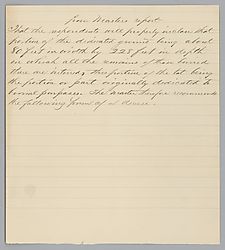 From Masters report
That the respondents will properly inclose that
portion of the dedicated ground being about
80 feet in width by 228 feet in depth
in which all the remains of those buried
there are interred, this portion of the lot being
the portion or part originally dedicated to
burial purposes. The Master therefore recommends
the following form of a decree.